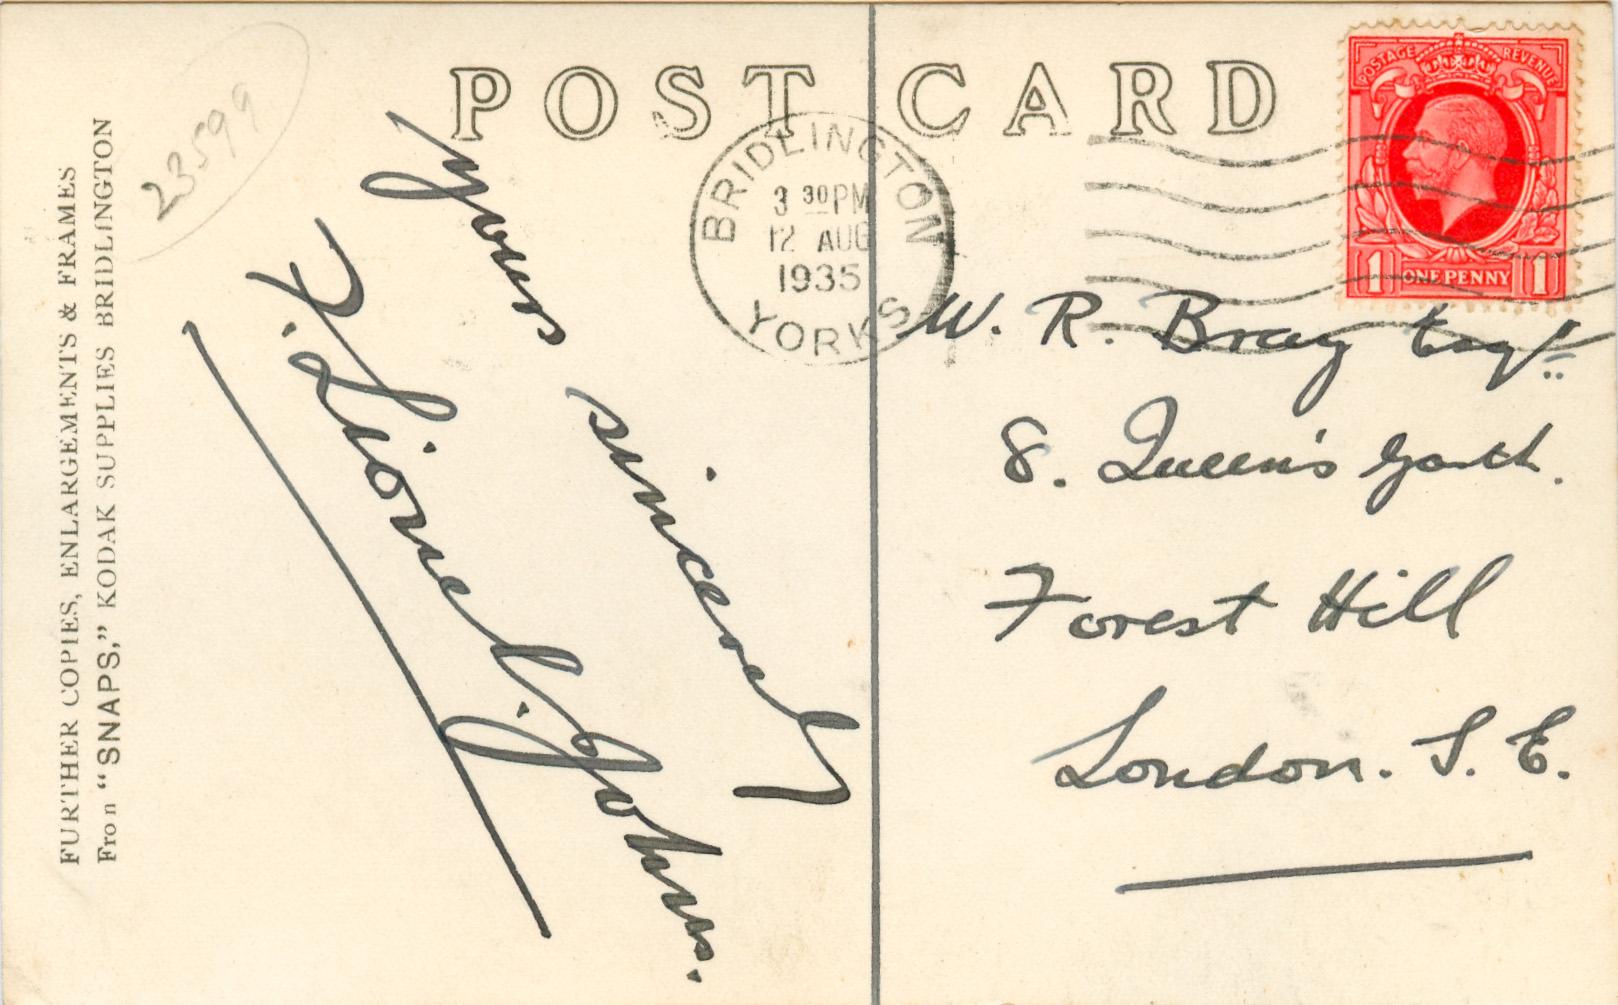 POST CARD
FURTHER COPIES, ENLARGEMENTS & FRAMES
Fro n "SNAPS," KODAK SUPPLIES BRIDLINGTON
23599
Yours sincerely
F. Lionel. Johns.
BRIDLINGTON
3 30 PM
12 AUG
1935
YORKS
POSTAGE REVENUE
1 ONE PENNY 1
W. R. Bray Esq.
8. Queen's Garth.
Forest Hill
London. S. E.